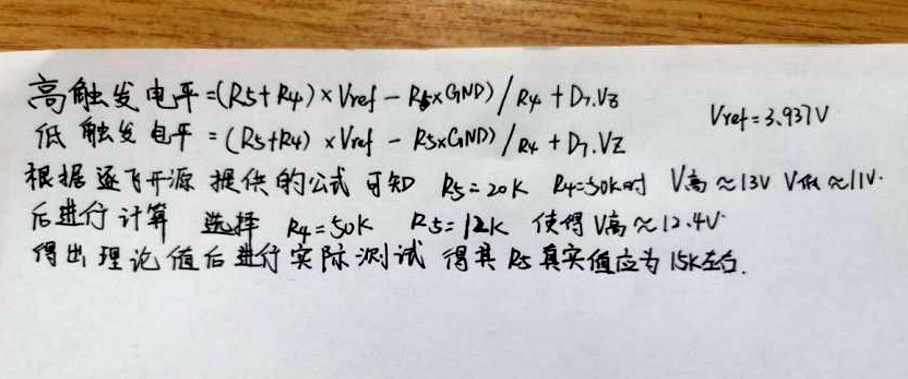 高触发电平=(R5+R4)×Vref-R5×GND)/R4+D7.VZ
Vref=3.937V
低触发电平=(R5+R4)×Vref-R5×GND)/R4+D7.VZ
根据逐飞开源提供的公式可知 R5=20K R4=50K时 V高≈13V V低≈11V.
后进行计算 选择 R4=50K R5=12K 使得V高≈12.4V
得出理论值后进行实际测试 得其R5真实值应为15K左右.